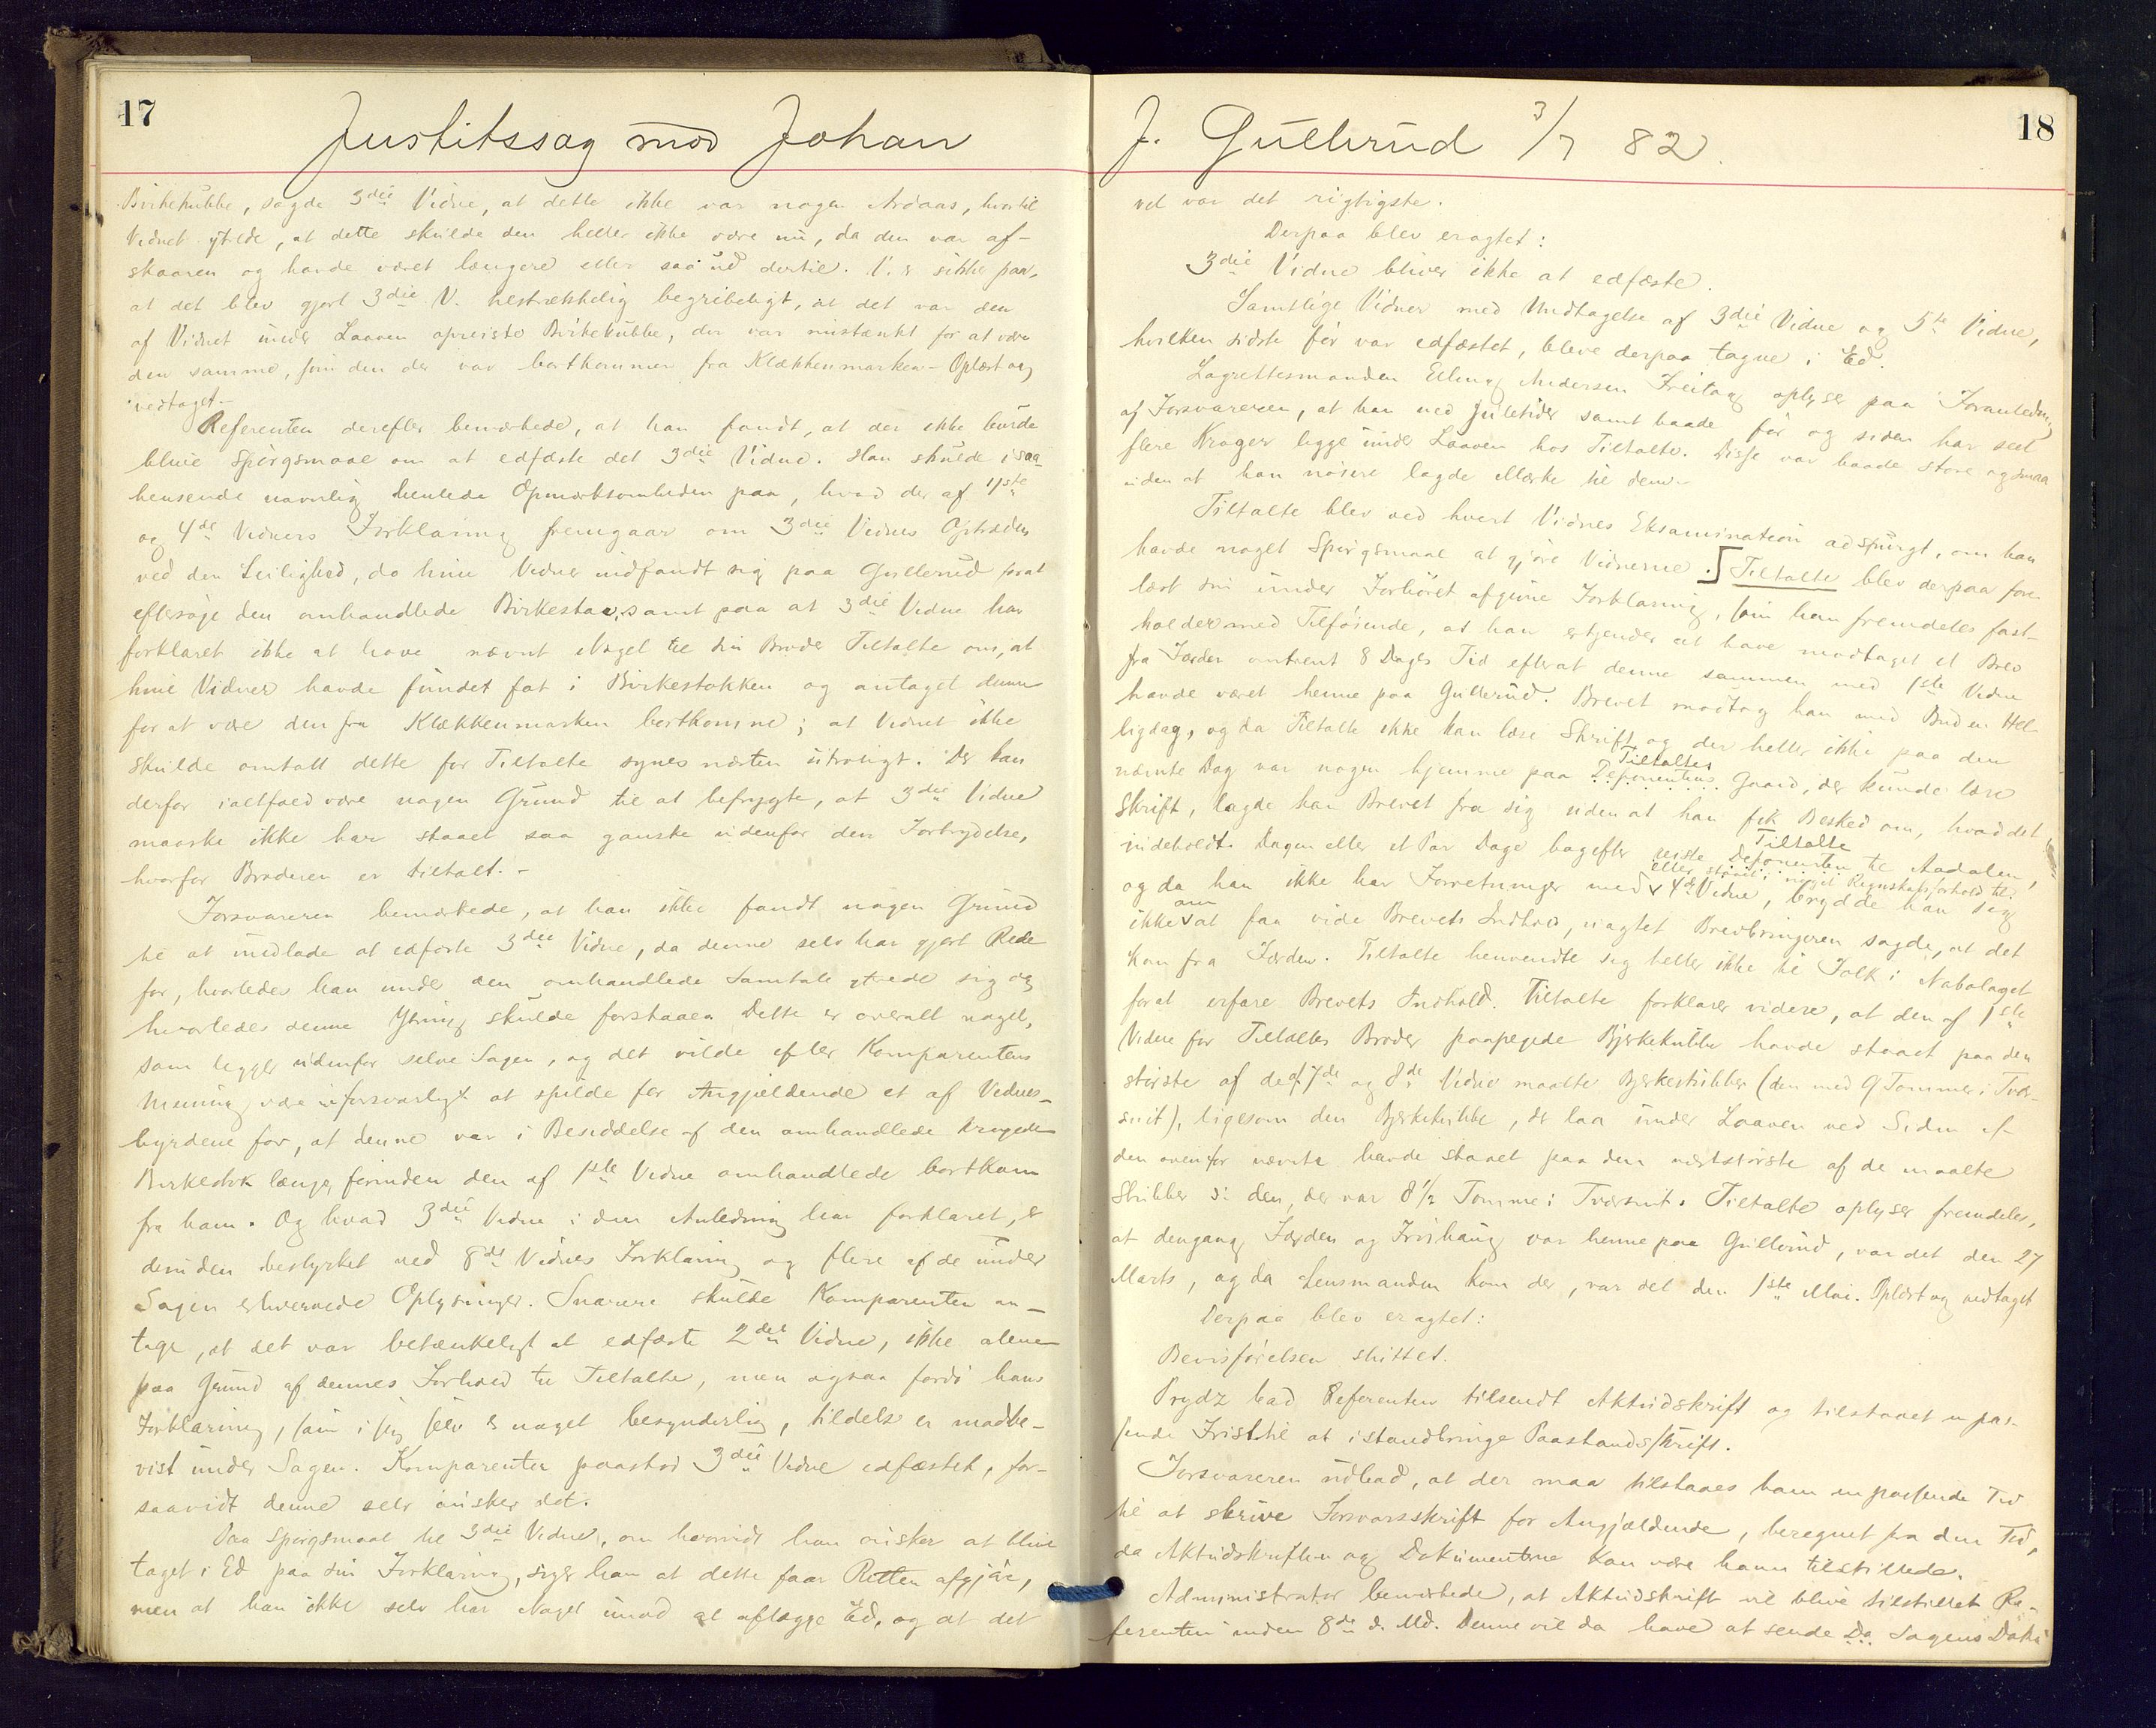 17
Justitssag mod Johan
Birkekubbe, sagde 3die Vidne, at dette ikke var nogen Aadaas, hvortil
Vidnet ytrede, at dette skulde den heller ikke være nu, da den var af-
skaaren og havde været længere eller saa ud dertil. V. er sikker paa,
at det blev gjort 3die V. tilstrækkelig begribeligt, at det var den
af Vidnet under Laaven opreiste Birkekubbe, der var mistænkt for at være
den samme, som den der var bortkommen fra Klækkenmarken - Oplæst og
vedtaget. -
Referenten derefter bemærkede, at han fandt, at der ikke burde
blive Spørgsmaal om at edfæste det 3die Vidne. Han skulde i saa-
henseende navnlig henlede Opmærksomheden paa, hvad der af 1ste
og 4de Vidners Forklaring fremgaar om 3die Vidnes Optræden
ved den Leilighed, da hine Vidner indfandt sig paa Gullerud forat
eftersøge den omhandlede Birkestok, samt paa at 3die Vidne har
forklaret ikke at have nævnt Noget til sin Broder Tiltalte om, at
hine Vidner havde fundet fat i Birkestokken og antaget denne
for at være den fra Klækkenmarken bortkomne; at Vidnet ikke
skulde omtalt dette for Tiltalte synes næsten utroligt. Der kan
derfor ialtfald være nogen Grund til at befrygte, at 3die Vidne
maaske ikke har staaet saa ganske udenfor den Forbrydelse,
hvorfor Broderen er tiltalt. -
Forsvareren bemærkede, at han ikke fandt nogen Grund
til at undlade at edfæste 3die Vidne, da denne selv har gjort Rede
for, hvorledes han under den omhandlede Samtale ytrede sig og
hvorledes denne Ytring skulde forstaaes. Dette er overalt noget,
som ligger udenfor selve Sagen, og det vilde efter Komparentens
Mening være uforsvarligt at spilde for Angjældende et af Vidnes-
byrdene for, at denne var i Besiddelse af den omhandlede krogede
Birkestok længe, forinden den af 1ste Vidne omhandlede bortkom
fra ham. Og hvad 3die Vidne i den Anledning har forklaret, er
desuden bestyrket ved 8de Vidnes Forklaring og flere af de under
Sagen erhvervede Oplysninger. Snarere skulde Komparenten an-
tage, at det var betænkeligt at edfæste 2det Vidne, ikke alene
paa Grund af dennes Forhold til Tiltalte, men ogsaa fordi hans
Forklaring, som i sig selv er noget besynderlig, tildels er modbe-
vist under Sagen. Komparenten paastod 3die Vidne edfæstet, for-
saavidt denne selv ønsker det.
Paa Spørgsmaal til 3die Vidne, om hvorvidt han ønsker at blive
taget i Ed paa sin Forklaring, siger han at dette faar Retten afgjøre,
men at han ikke selv har Noget imod at aflægge Ed, og at det
J. Gullerud 3/7 82.
18
vel var det rigtigste.
Derpaa blev eragtet:
3die Vidne bliver ikke at edfæste.
Samtlige Vidner med Undtagelse af 3die Vidne og 5te Vidne,
hvilken sidste før var edfæstet, bleve derpaa tagne i Ed.
Lagrettesmanden Elling Andersen Freitag oplyser paa Foranledning
af Forsvareren, at han ved Juletider samt baade før og siden har seet
flere Kroger ligge under Laaven hos Tiltalte. Disse var baade store og smaa
uden at han nøiere lagde Mærke til dem. -
Tiltalte blev ved hvert Vidnes Eksamination adspurgt, om han
havde noget Spørgsmaal at gjøre Vidnerne.] Tiltalte blev derpaa fore-
læst sin under Forhøret afgivne Forklaring, som han fremdeles fast-
holder med Tilføiende, at han erkjender at have modtaget et Brev
fra Jorden omtrent 8 Dages Tid efterat denne sammen med 1ste Vidne
havde været henne paa Gullerud. Brevet modtog han med Bud en Hel-
ligdag, og da Tiltalte ikke kan læse Skrift og der heller ikke paa den
nævnte Dag var nogen hjemme paa Deponentens Tiltaltes Gaard, der kunde læse
Skrift, lagde han Brevet fra sig uden at han fik Besked om, hvad det
indeholdt. Dagen eller et Par Dage bagefter reiste Deponenten Tiltalte til Aadalen,
og da han ikke har Forretninger med eller staaet i noget Regnskabsforhold til 4de Vidne, brydde han sig
ikke om at faa vide Brevets Indhold, uagtet Brevbringeren sagde, at det
kom fra Jorden. Tiltalte henvendte sig heller ikke til Folk i Nabolaget
forat erfare Brevets Indhold. Tiltalte forklarer videre, at den af 1ste
Vidne for Tiltaltes Broder paapegede Bjerkekubbe havde staaet paa den
største af de af 7de og 8de Vidne maalte Bjerkestubber (den med 9 Tommer i Tvær-
snit), ligesom den Bjerkekubbe, der laa under Laaven ved Siden af
den ovenfor nævnte havde staaet paa den næststørste af de maalte
Stubber ɔ: den, der var 8 1/2 Tomme i Tværsnit. Tiltalte oplyser fremdeles,
at dengang Jorden og Frøshaug var henne paa Gullerud, var det den 27
Marts, og da Lensmanden kom der, var det den 1ste Mai. Oplæst og vedtaget
Derpaa blev eragtet:
Bevisførelsen sluttet.
Prydz bad Referenten tilsendt Aktudskrift og tilstaaet en pas-
sende Frist til at istandbringe Paastandsskrift.
Forsvareren udbad, at der maa tilstaaes ham en passende Tid
til at skrive Forsvarsskrift for Angjældende, beregnet fra den Tid,
da Aktudskriften og Dokumenterne kan være ham tilstillede.
Administrator bemærkede, at Aktudskrift vil blive tilstillet Re-
ferenten inden 8de d. Md. Denne vil da have at sende Da Sagens Doku